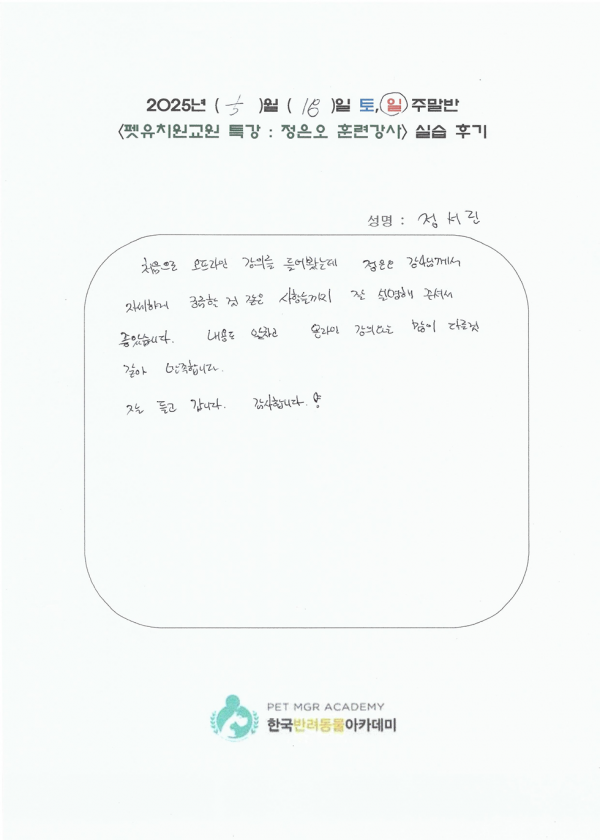 2025년 ( 5 )월 ( 18 )일 토,일 주말반
<펫유치원교원 특강 : 정은오 훈련강사> 실습 후기
성명 : 정서린
처음으로 오프라인 강의를 들어봤는데 정은오 강사님께서
자세하게 궁금한 것 같은 사항들까지 잘 설명해 주셔서
좋았습니다. 내용도 알차고 온라인 강의와는 많이 다른것
같아 만족합니다.
잘 듣고 갑니다. 감사합니다.
PET MGR ACADEMY
한국반려동물아카데미